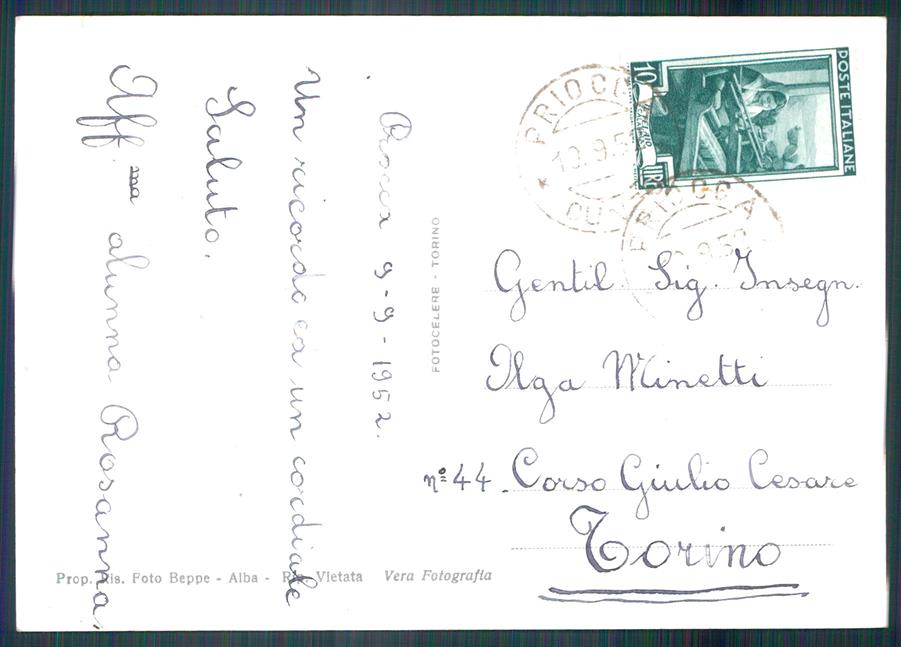 Priocca 9-9-1952.
Un ricordo ed un cordiale
Saluto.
Aff.ma alunna Rosanna.
FOTOCELERE - TORINO
POSTE ITALIANE
10
LIRE
PRIOCCA
10.9.5
CU
PRIOCCA
9.52
Gentil. Sig. Insegn.
Ilga Minetti
nº 44. Corso Giulio Cesare
Torino
Prop. Ris. Foto Beppe - Alba - Rip. Vietata Vera Fotografia